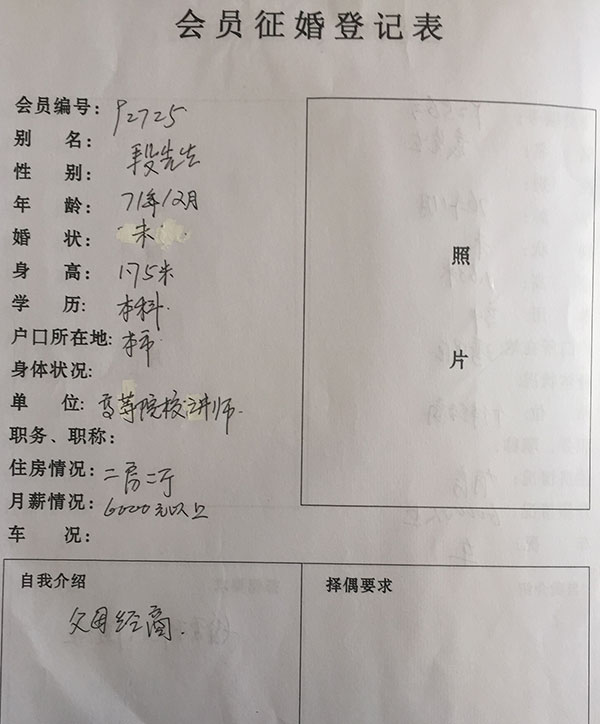 会员征婚登记表
会员编号: P2725
别 名: 段先生
性 别:
年 龄: 71年12月
婚 状: 未
身 高: 1.75米
学 历: 本科.
户口所在地: 本市
身体状况:
单 位: 高等院校讲师.
职务、职称:
住房情况: 二房二厅
月薪情况: 6000元以上
车 况:
照
片
自我介绍
父母经商.
择偶要求